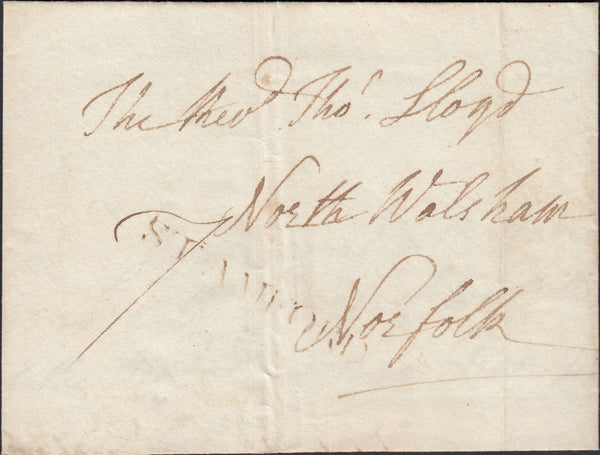 The Revd. Thos. Lloyd
North Walsham
7
Norfolk